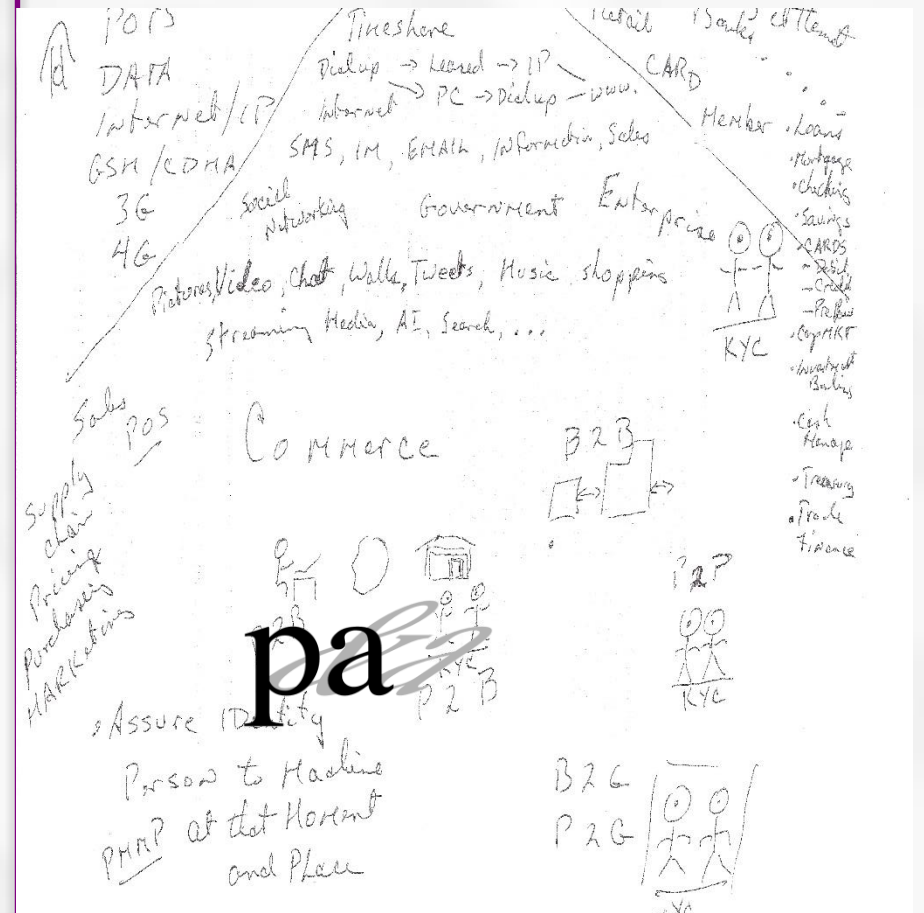 Id
POTS
DATA
Internet/IP
GSM/CDMA
3G
4G
Timeshare
Dialup → Leased → IP
Internet → PC → Dialup – www.
SMS, IM, EMAIL, INformation, Sales
Social Networking
Government Enterprise
Pictures, Video, Chat, Walls, Tweets, Music shopping
Streaming Media, AI, Search, ...
Retail Banks
CARD
Member
• Loans
• Mortgage
• Checking
• Savings
• CARDS
– Debit
– Credit
• Cap MKT
• Investment
Banking
• Cash
Manage
• Treasury
• Trade
Finance
KYC
Sales
POS
Supply
chain
Pricing
Purchasing
MARKeting
Commerce
B2B
P2P
KYC
pa
KYC
P2B
• Assure IDentity
Person to Machine
PMMP at that Moment
and PLace
B2G
P2G